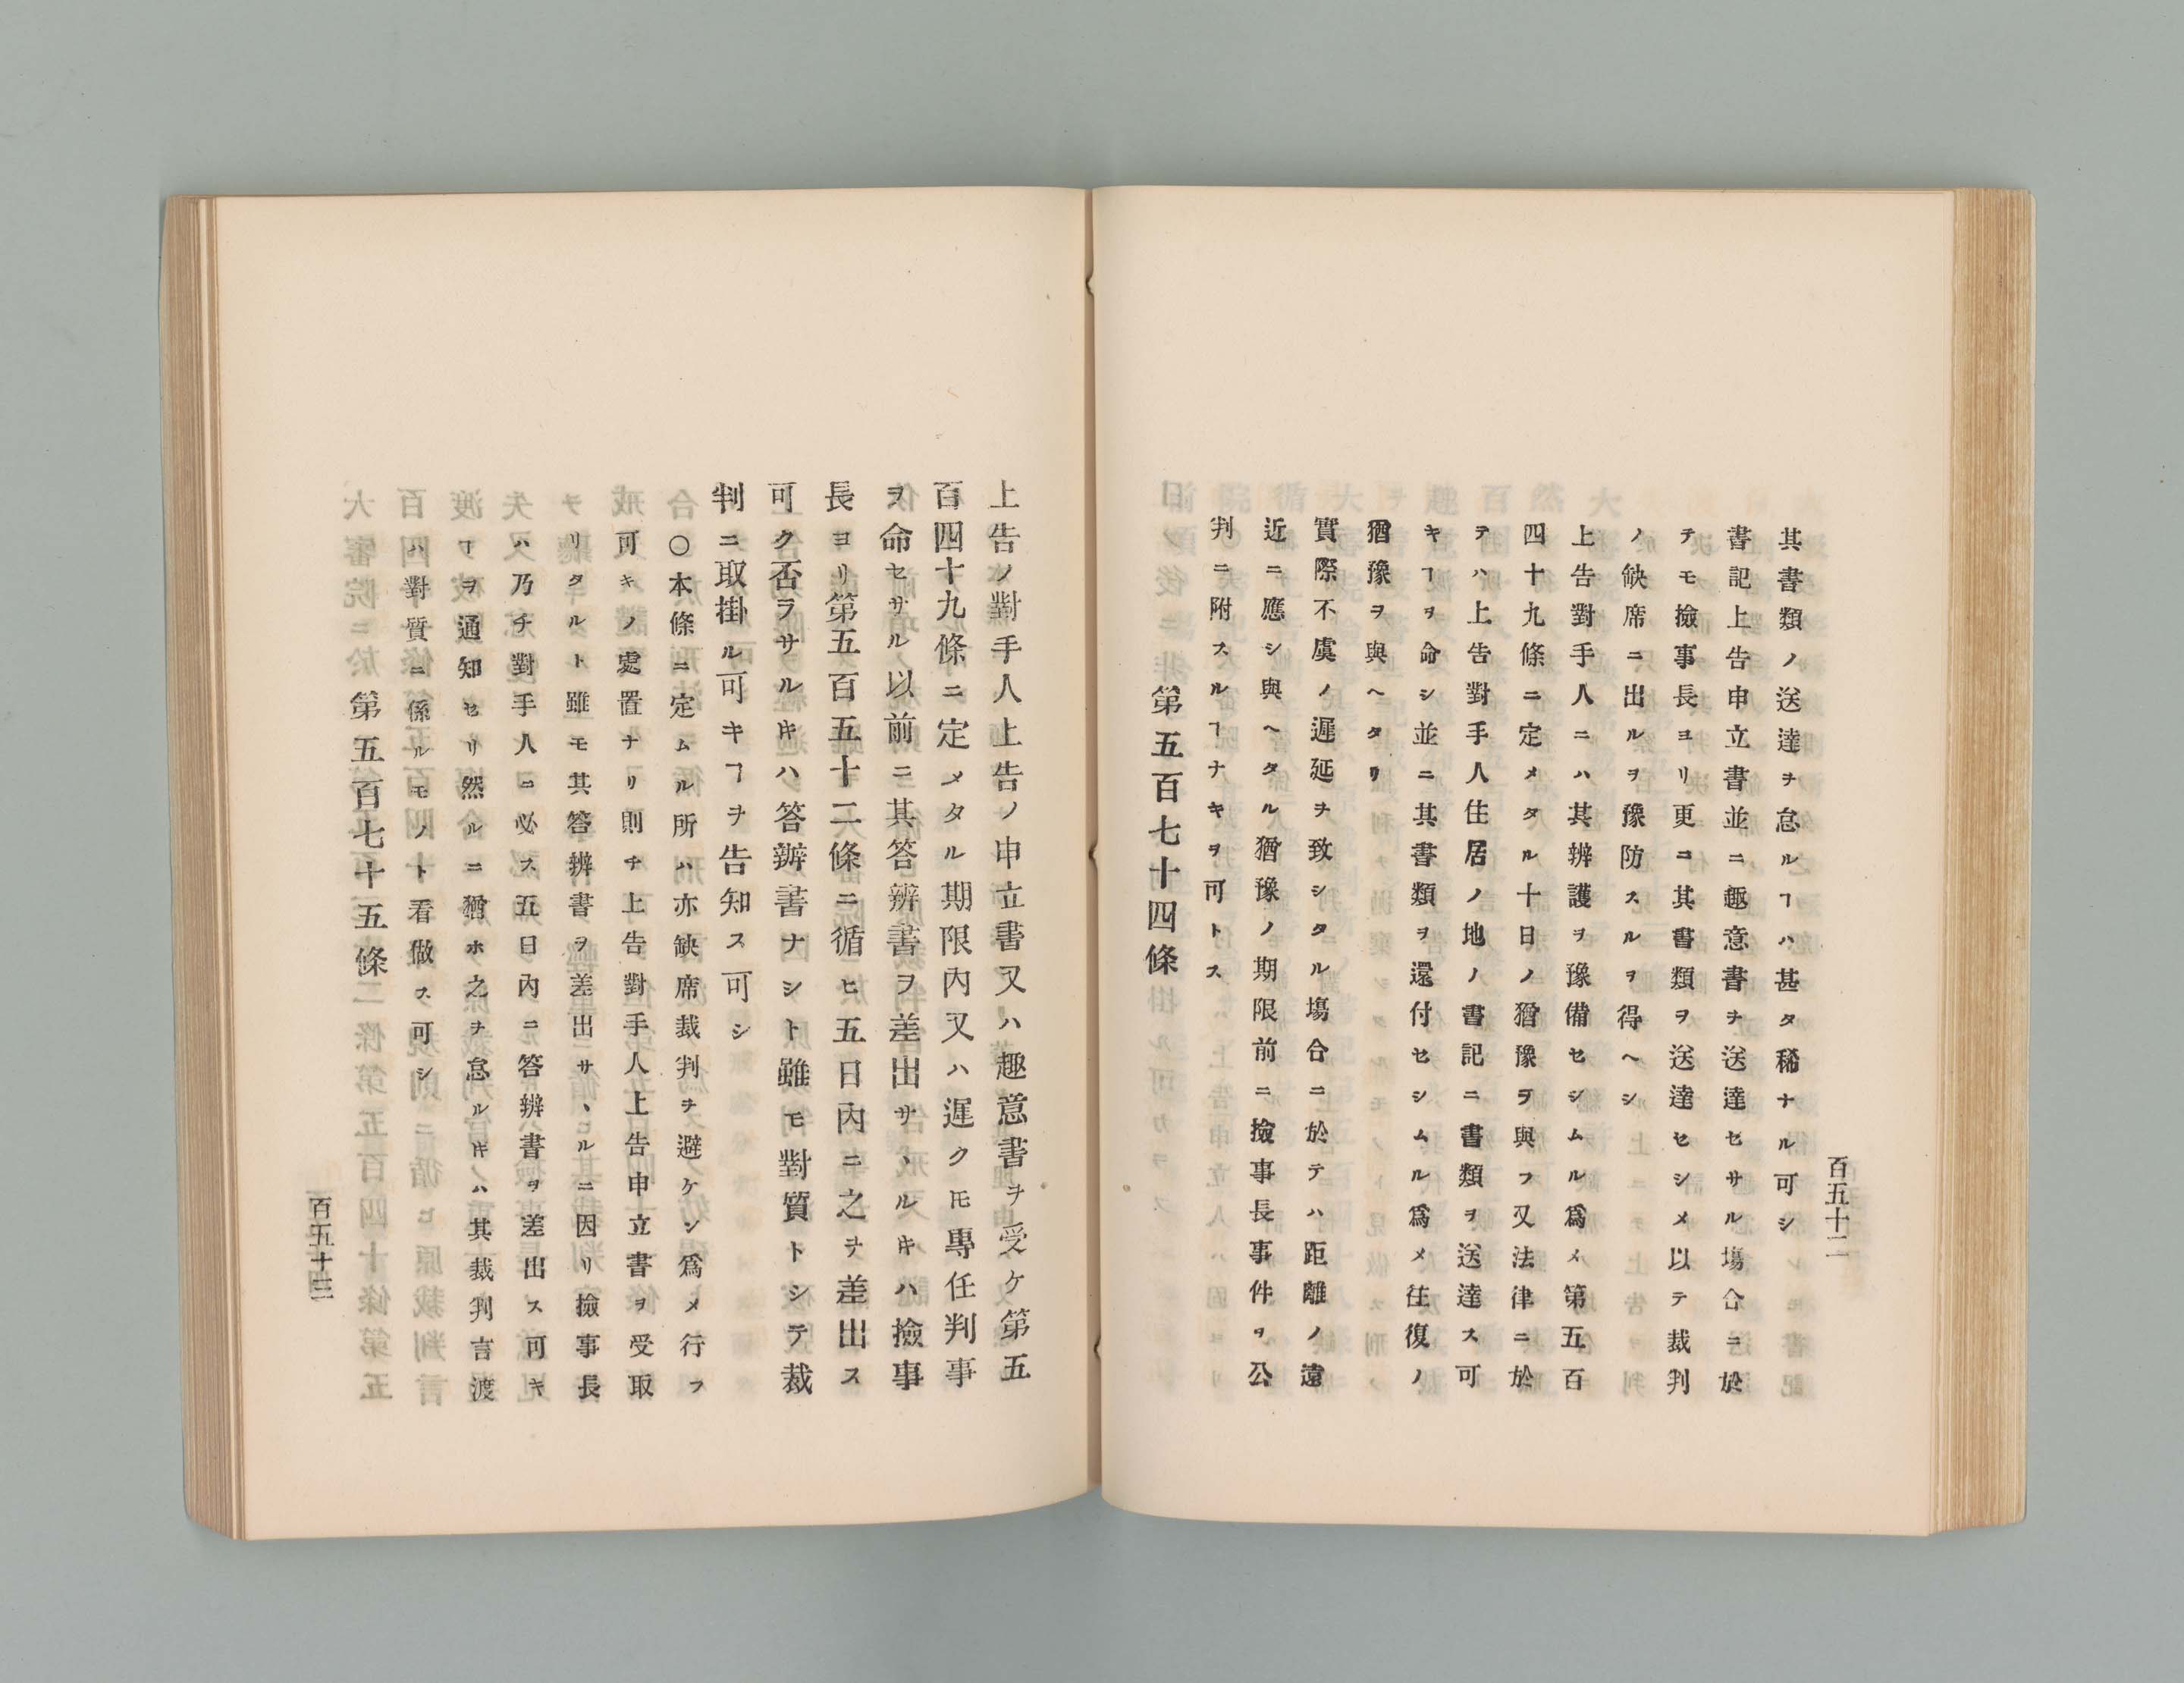 百五十二
其書類ノ送達ヲ怠ルヿハ甚タ稀ナル可シ
書記上告申立書並ニ趣意書ヲ送達セサル塲合ニ於
テモ撿事長ヨリ更ニ其書類ヲ送達セシメ以テ裁判
ノ缺席ニ出ルヲ豫防スルヲ得ヘシ
上告對手人ニハ其辨護ヲ豫備セシムル爲メ第五百
四十九條ニ定メタル十日ノ猶豫ヲ與フ又法律ニ於
テハ上告對手人住居ノ地ノ書記ニ書類ヲ送達ス可
キヿヲ命シ並ニ其書類ヲ還付セシムル爲メ往復ノ
猶豫ヲ與ヘタリ
實際不虞ノ遲延ヲ致シタル塲合ニ於テハ距離ノ遠
近ニ應シ與ヘタル猶豫ノ期限前ニ撿事長事件ヲ公
判ニ附スルヿナキヲ可トス
第五百七十四條
上告ノ對手人上告ノ申立書又ハ趣意書ヲ受ケ第五
百四十九條ニ定メタル期限内又ハ遲クモ專任判事
ヲ命セサル以前ニ其答辨書ヲ差出サヽルキハ撿事
長ヨリ第五百五十二條ニ循ヒ五日内ニ之ヲ差出ス
可ク否ラサルキハ答辨書ナシト雖モ對質トシテ裁
判ニ取掛ル可キヿヲ告知ス可シ
〇本條ニ定ムル所ハ亦缺席裁判ヲ避ケン爲メ行フ
可キノ處置ナリ則チ上告對手人上告申立書ヲ受取
リタルト雖モ其答辨書ヲ差出サヽルニ因リ撿事長
ハ乃チ對手人ニ必ス五日内ニ答辨書ヲ差出ス可キ
ヿヲ通知セリ然ルニ猶ホ之ヲ怠ルキハ其裁判言渡
ハ對質ニ係ルモノト看做ス可シ
第五百七十五條
百五十三